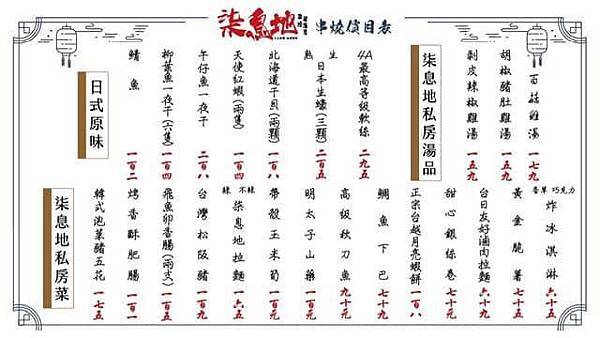 柒息地 串燒價目表
柒息地私房湯品
百菇雞湯 一七九
胡椒豬肚雞湯 一五九
剝皮辣椒雞湯 一五九
日式原味
4A最高等級軟絲 二九五
生 熟 日本生蠔(三顆) 二百五
北海道干貝(兩顆) 一百八
天使紅蝦(兩隻) 一百四
午仔魚一夜干 二百八
柳葉魚一夜干(六隻) 一百四
鯖魚 一百二
香草 巧克力 炸冰淇淋 六十五
黃金脆薯 五十七
台日友好滷肉拉麵 六十九
甜心銀絲卷 七十元
正宗台越月亮蝦餅 一百八
鯛魚下巴 七十元
高級秋刀魚 九十元
明太子山藥 一百元
帶殼玉米筍 一百元
辣 不辣 柒息地拉麵 一六五
台灣松阪豬 一百九
飛魚卵香腸(兩支) 一百五
烤香酥肥腸 一百二
韓式泡菜豬五花 一七五
柒息地私房菜